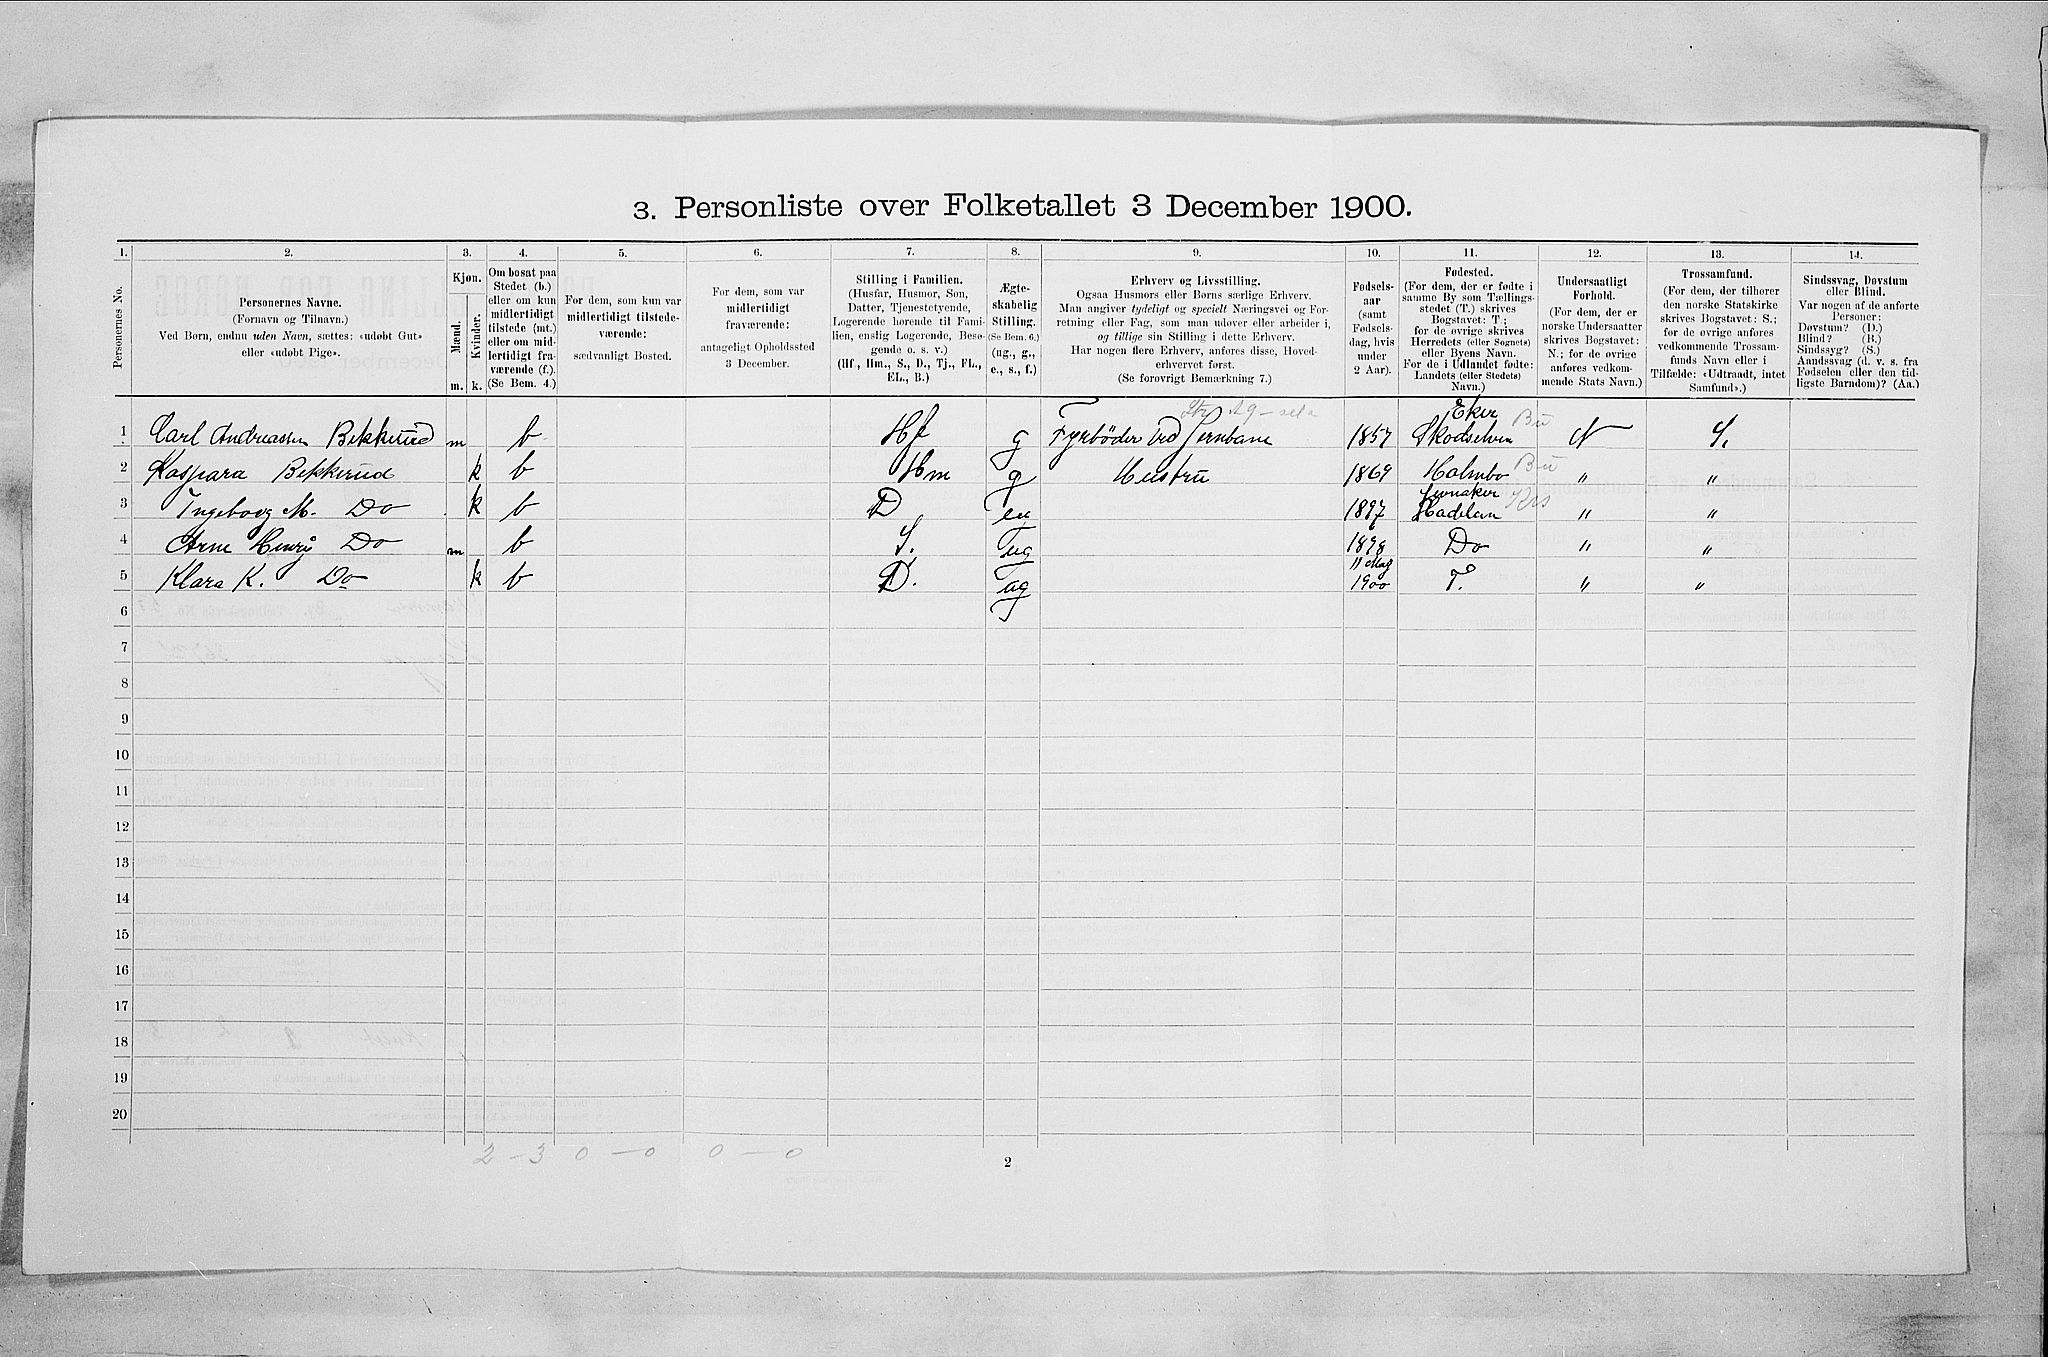 3. Personliste over Folketallet 3 December 1900.
1. 2. 3. 4. 5. 6. 7. 8. 9. 10. 11. 12. 13. 14.
Personernes No.
Personernes Navne.
(Fornavn og Tilnavn.)
Ved Børn, endnu uden Navn, sættes: «udøbt Gut»
eller «udøbt Pige».
Kjøn.
Mænd.
Kvinder.
m. k.
Om bosat paa
Stedet (b.)
eller om kun
midlertidigt
tilstede (mt.)
eller om mid-
lertidigt fra-
værende (f.).
(Se Bem. 4.)
For dem, som kun var
midlertidigt tilstede-
værende:
sædvanligt Bosted.
For dem, som var
midlertidigt
fraværende:
antageligt Opholdssted
3 December.
Stilling i Familien.
(Husfar, Husmor, Søn,
Datter, Tjenestetyende,
Logerende hørende til Fami-
lien, enslig Logerende, Besø-
gende o. s. v.)
(Hf., Hm., S., D., Tj., FL.,
EL., B.)
Ægte-
skabelig
Stilling.
(Se Bem. 6.)
(ug., g.,
e., s., f.)
Erhverv og Livsstilling.
Ogsaa Husmors eller Børns særlige Erhverv.
Man angiver tydeligt og specielt Næringsvei og For-
retning eller Fag, som man udøver eller arbeider i,
og tillige sin Stilling i dette Erhverv.
Har nogen flere Erhverv, anføres disse, Hoved-
erhvervet først.
(Se forøvrigt Bemærkning 7.)
Fødsels-
aar
(samt
Fødsels-
dag, hvis
under
2 Aar).
Fødested.
(For dem, der er fødte i
samme By som Tællings-
stedet (T.) skrives
Bogstavet: T;
for de øvrige skrives
Herredets (eller Sognets)
eller Byens Navn.
For de i Udlandet fødte:
Landets (eller Stedets)
Navn.)
Undersaatligt
Forhold.
(For dem, der er
norske Undersaatter
skrives Bogstavet:
N.; for de øvrige
anføres vedkom-
mende Stats Navn.)
Trossamfund.
(For dem, der tilhører
den norske Statskirke
skrives Bogstavet: S.;
for de øvrige anføres
vedkommende Trossam-
funds Navn eller i
Tilfælde: «Udtraadt, intet
Samfund».)
Sindssvag, Døvstum
eller Blind.
Var nogen af de anførte
Personer:
Døvstum? (D.)
Blind? (B.)
Sindssyg? (S.)
Aandssvag (d. v. s. fra
Fødselen eller den tid-
ligste Barndom)? (Aa.)
Eker
1 Carl Andreassen Bekkerud m b Hf g Fyrbøder ved Jernbane 1857 Skodselven Bu N S.
2 Kaspara Bekkerud k b Hm g Hustru 1869 Holmbo Bu " "
Jevnaker
3 Ingeborg M. Do k b D ug 1897 Hadeland Krs " "
4 Arne Henry Do m b S. ug 1898 Do " "
11 Mag
5 Klara K. Do k b D. ug 1900 T. " "
6
7
8
9
10
11
12
13
14
15
16
17
18
19
20
2 – 3 0 – 0 0 – 0
2